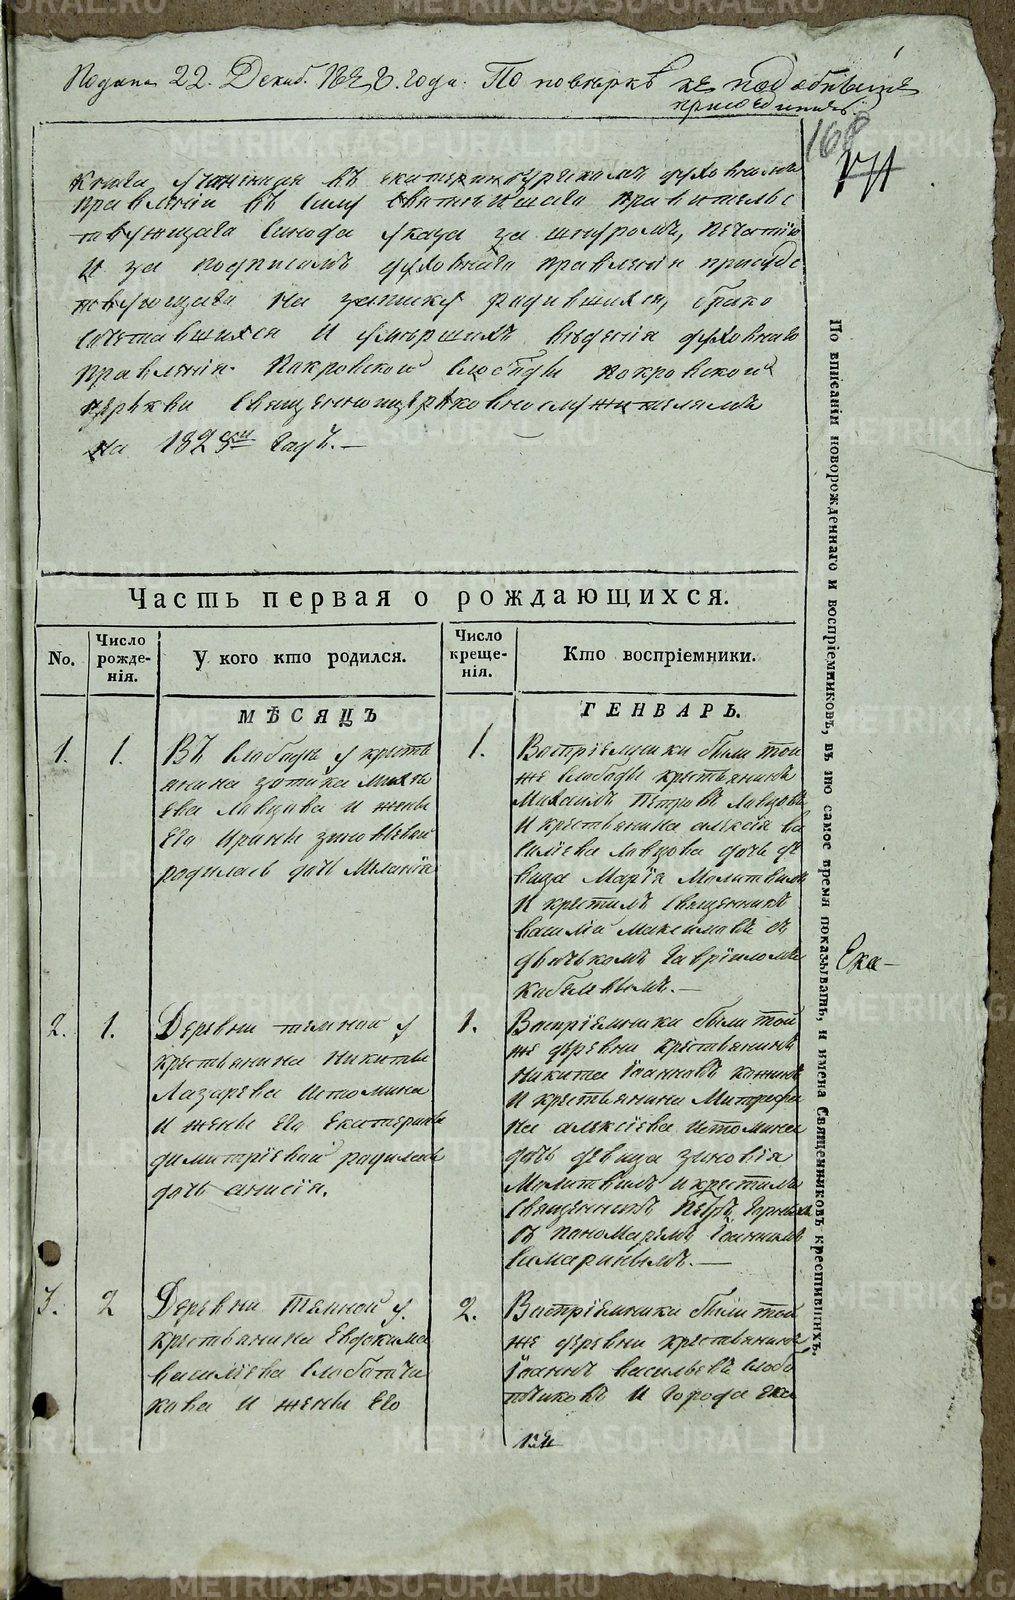 Подана 22. Декаб. 1828. года. По повѣркѣ
168
Книга учиненная въ екатеринбургскомъ духовномъ
правленіи въ силу Святѣйшаго правительс
твующаго Синода указа за шнуромъ, печатью
и за подписомъ духовнаго правленія присудс
твующаго на записку родившихся, брако
сочетавшихся и умершихъ вѣденія духовнаго
правленія Покровской слободы покровской
церкви священноцерковнослужителямъ
на 1828й годъ.
Часть первая о рождающихся.
No.
Число рожде-нія.
У кого кто родился.
Число креще-нія.
Кто воспріемники.
МѢСЯЦЪ
ГЕНВАРЬ.
1.
1.
Въ слободѣ у кресть
янина Зотика Михѣ
ева и жены
его Ирины Зиновѣевой
родилась дочь Меланія
1.
Воспріемники были той
же слободы крестьянинъ
Михаилъ Петровъ
и крестьянина алексія ва
силіева дочь дѣ
вица Марія Молитвилъ
и крестилъ священникъ
василій максимовъ съ
дьячькомъ Гавріиломъ
2.
1.
Деревни темной у
крестьянина никиты
Лазарева истомина
и жены его екатерины
димитріевой родилась
дочь анисія.
1.
Воспріемники были той
же деревни крестьянинъ
никита Іоанновъ
и крестьянина Митрофа
на алексіева истомина
дочь дѣвица зиновія
Молитвилъ и крестилъ
священникъ Петръ
съ пономаремъ Іоанномъ
самаринымъ.
3.
2
Деревни Темной у
крестьянина евдокима
василіева слободчи
кова и жены его
2.
Воспріемники были той
же деревни крестьянинъ
Іоаннъ васильевъ слобо
тчиковъ и города ека
По вписаніи новорожденнаго и воспріемниковъ, въ то самое время показывать, и имена Священниковъ крестившихъ.
Ека-